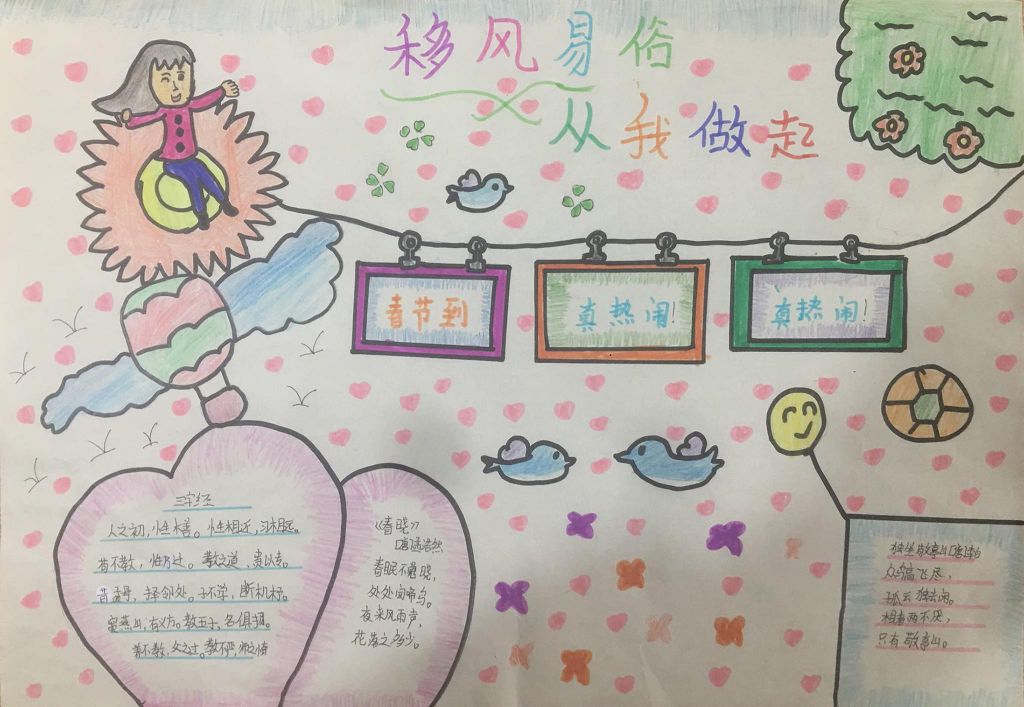 移风易俗
从我做起
春节到
真热闹!
真热闹!
三字经
人之初,性本善。性相近,习相远。
苟不教,性乃迁。教之道,贵以专。
昔孟母,择邻处。子不学,断机杼。
窦燕山,有义方。教五子,名俱扬。
养不教,父之过。教不严,师之惰
《春晓》
唐孟浩然
春眠不觉晓,
处处闻啼鸟。
夜来风雨声,
花落之多少。
独坐敬亭山
众鸟高飞尽,
孤云独去闲。
相看两不厌,
只有敬亭山。